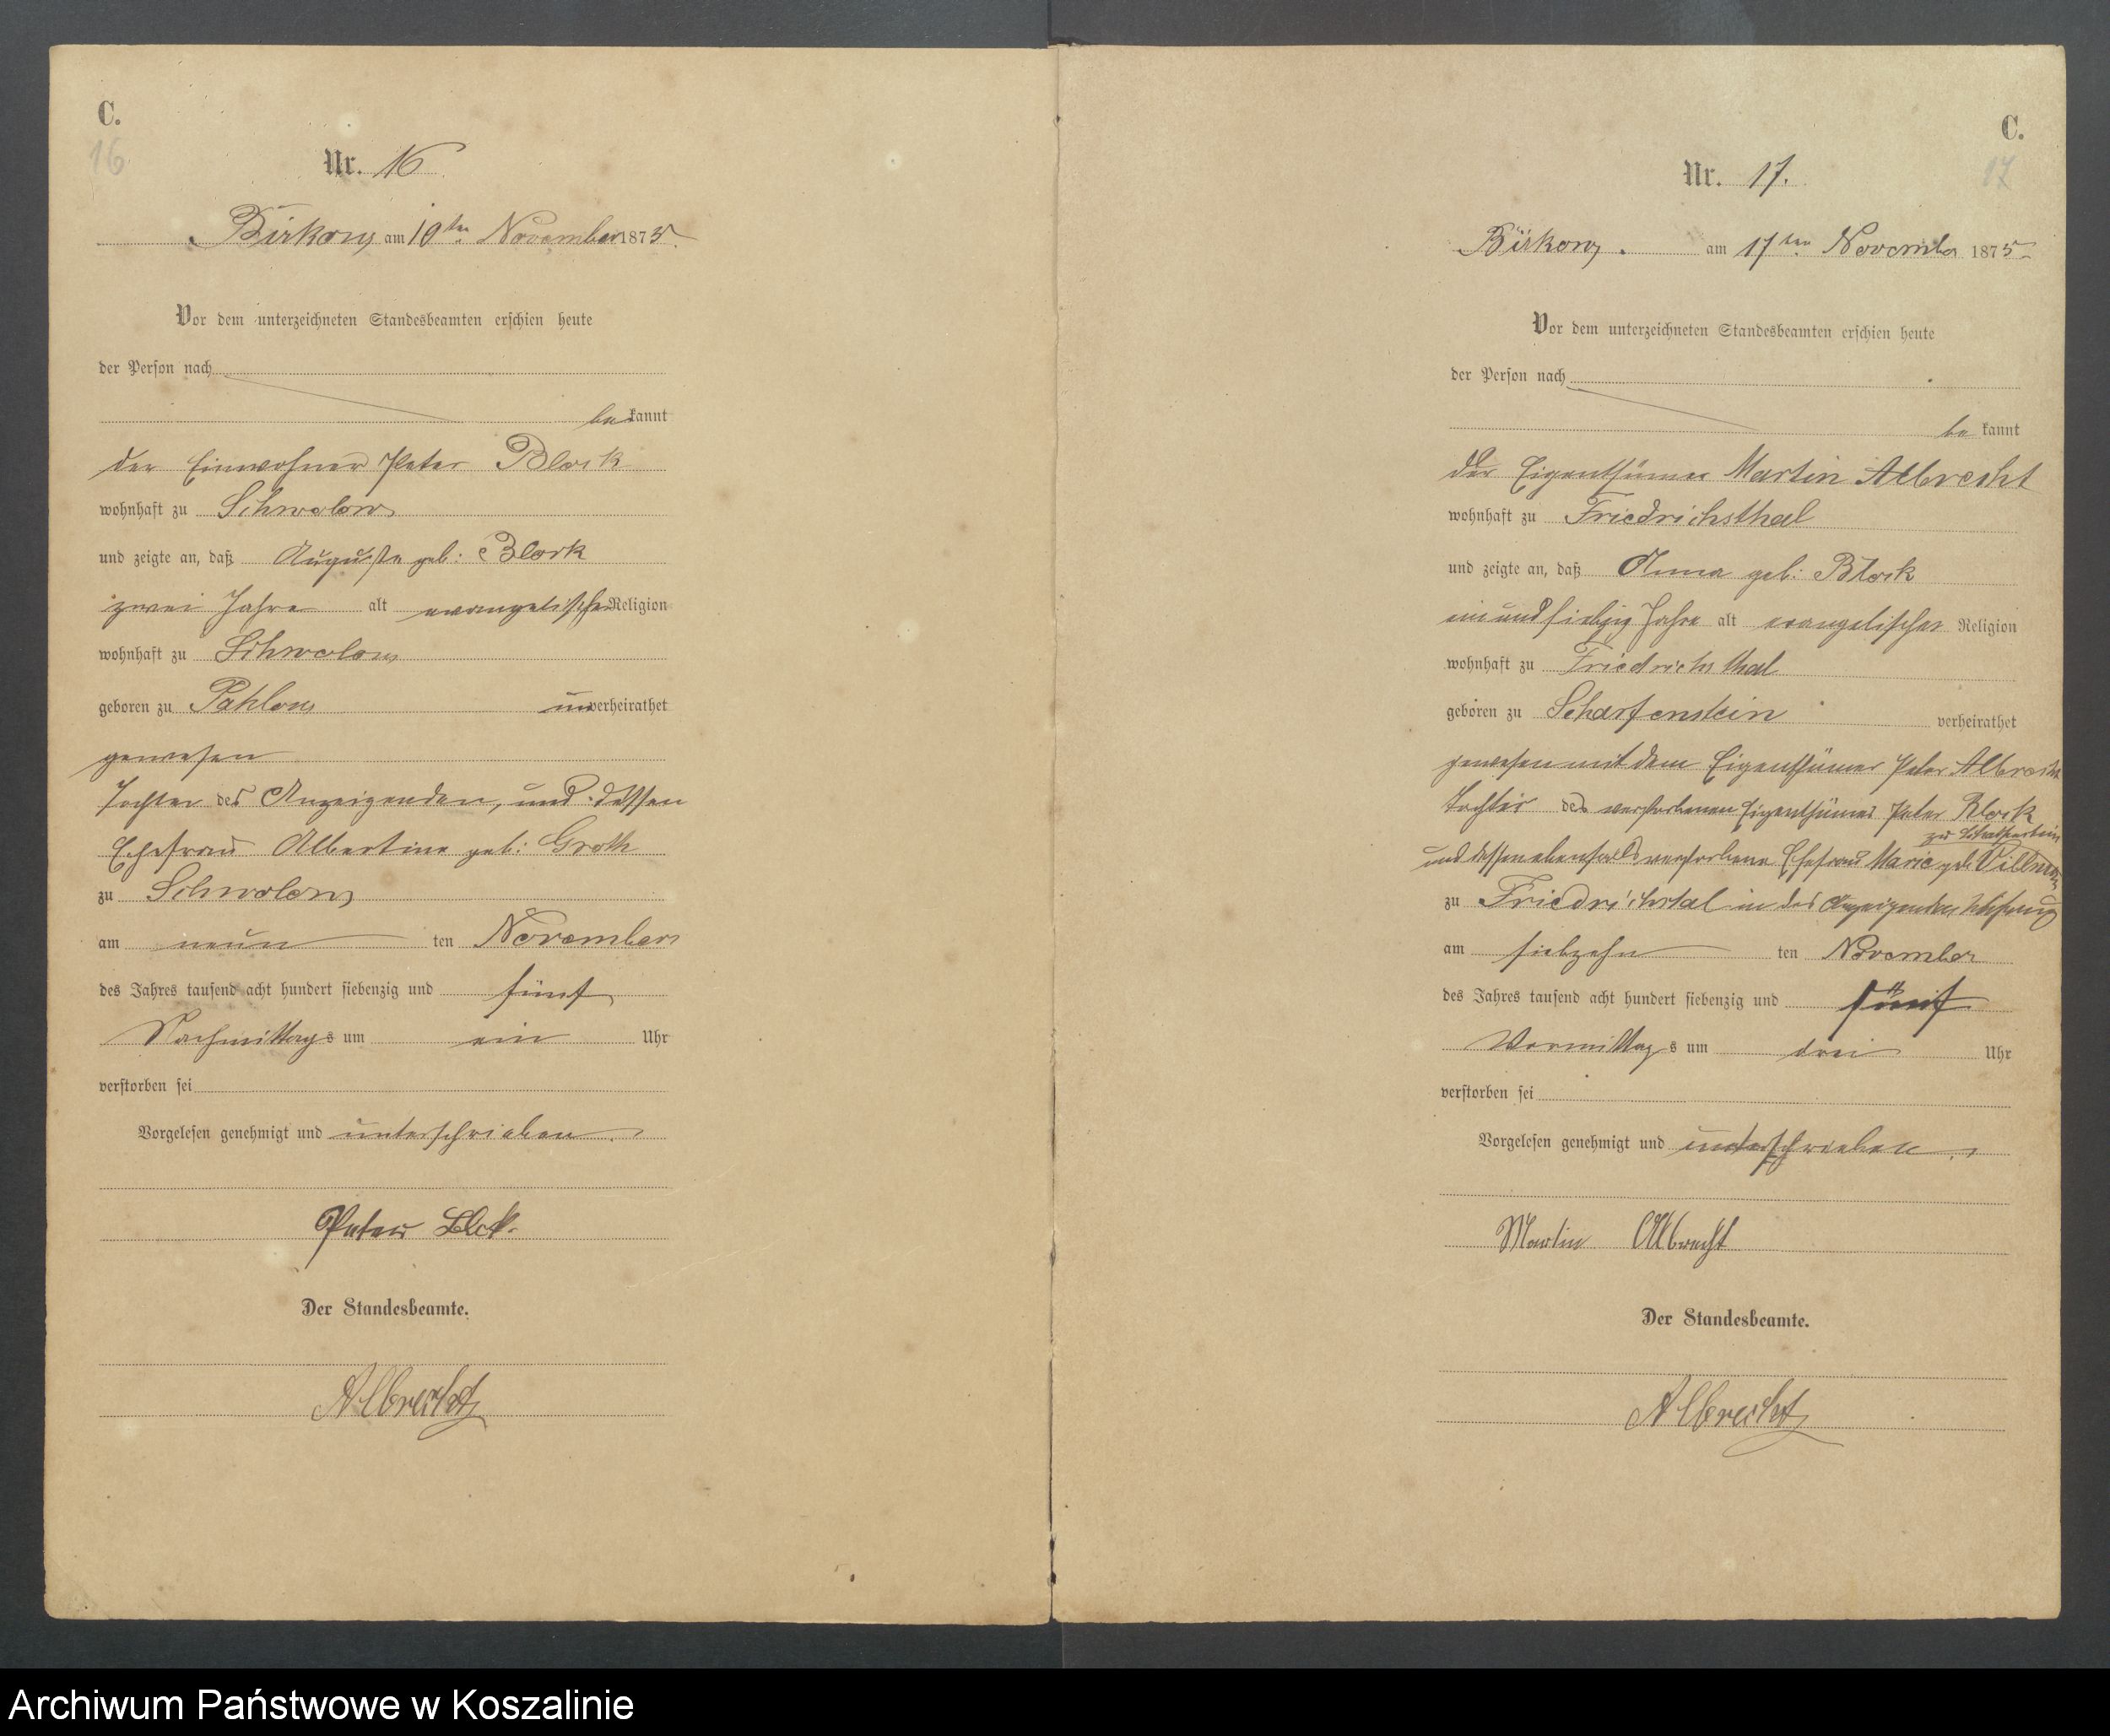 C.
16
Nr. 16
Birkow am 10ten November 1875.
Vor dem unterzeichneten Standesbeamten erschien heute
der Person nach
bekannt
der Einwohner Peter Block
wohnhaft zu Schwolow
und zeigte an, daß Auguste geb: Block
zwei Jahre alt evangelischer Religion
wohnhaft zu Schwolow
geboren zu Pahlow unverheirathet
gewesen
Tochter des Anzeigenden, und dessen
Ehefrau Albertine geb: Groth
zu Schwolow
am neun ten November
des Jahres tausend acht hundert siebenzig und fünf
Nachmittags um ein Uhr
verstorben sei
Vorgelesen genehmigt und unterschrieben.
Peter
Der Standesbeamte.
Albrecht
C.
17
Nr. 17.
Birkow. am 17ten November 1875
Vor dem unterzeichneten Standesbeamten erschien heute
der Person nach
be kannt
der Eigenthümer Martin Albrecht
wohnhaft zu Friedrichsthal
und zeigte an, daß Anna geb: Block
ein und siebzig Jahre alt evangelischer Religion
wohnhaft zu Friedrichsthal
geboren zu Scharfenstein verheirathet
gewesen mit dem Eigenthümer Peter Albrecht
Tochter des verstorbenen Eigenthümer Peter Block
zu Scharfenstein
und dessen ebenfalls verstorbene Ehefrau Marie geb.
zu Friedrichstal in des Anzeigenden Wohnung
am siebzehn ten November
des Jahres tausend acht hundert siebenzig und fünf
Vormittags um drei Uhr
verstorben sei
Vorgelesen genehmigt und unterschrieben.
Martin Albrecht
Der Standesbeamte.
Albrecht
Archiwum Państwowe w Koszalinie